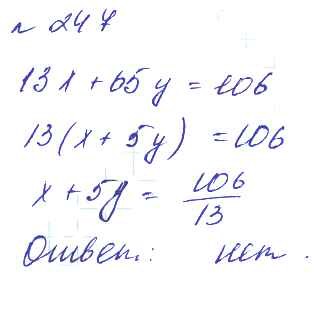 н 247
13x + 65y = 106
13(x + 5y) = 106
x + 5y = 106/13
Ответ: нет.